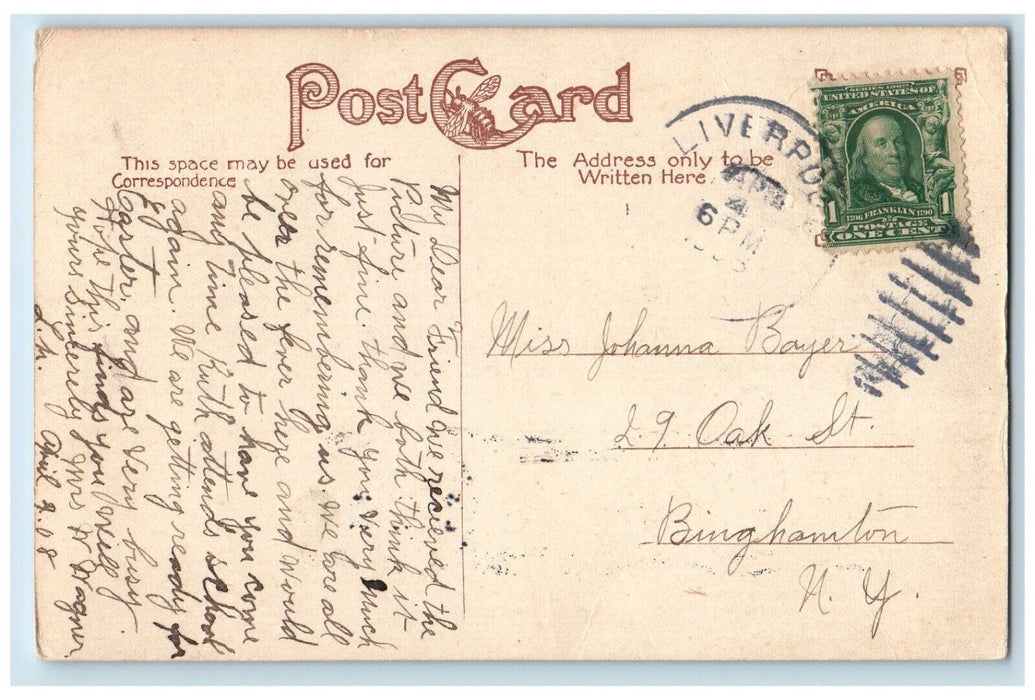 Post Card
This space may be used for
Correspondence
The Address only to be
Written Here
LIVERPOO
APR
4
6 PM
SERIES 1902
UNITED STATES OF
AMERICA
1 1
1706 FRANKLIN 1790
POSTAGE
ONE CENT
Miss Johanna Bayer
29 Oak St.
Binghamton
N. Y.
My Dear Friend We recieved the
Picture and we both think it
Just fine. thank you very much
for remembering us We are all
over the fever here and would
be pleased to have you come
any time Ruth attends school
again. We are getting ready for
Easter, and are very busy
Hope this finds you Well
yours Sinterely Mrs Wagner
April 3. 08